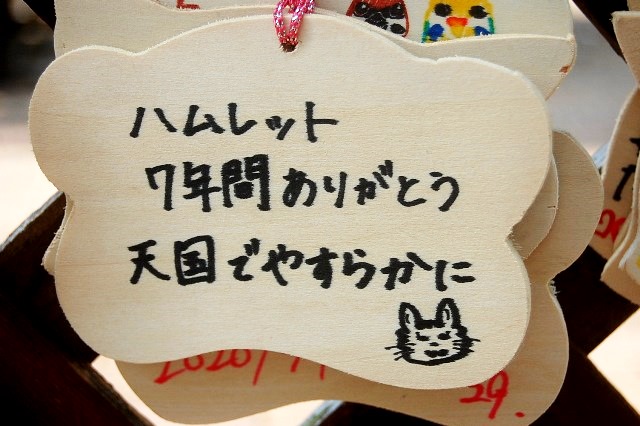 ハムレット
7年間ありがとう
天国でやすらかに
2020/11
29.